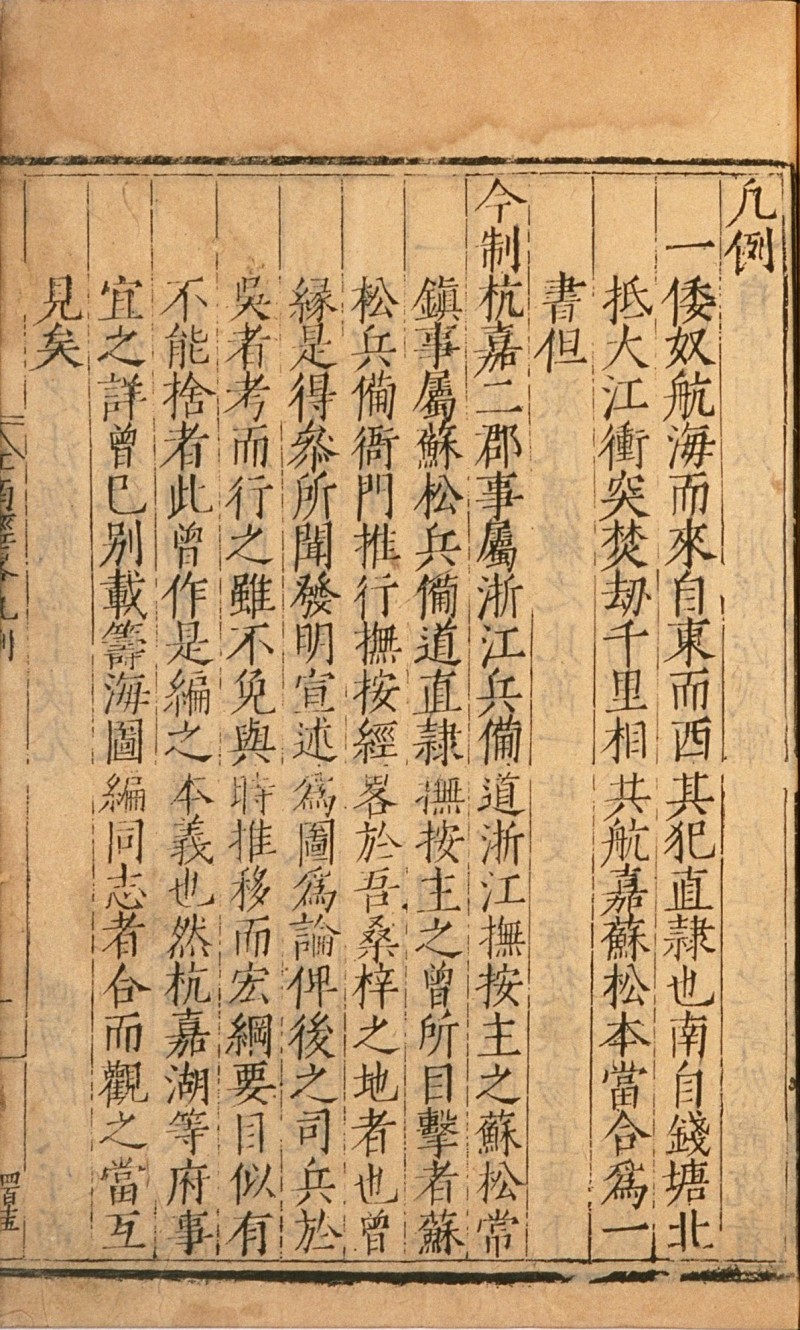 凡例
一倭奴航海而來自東而西其犯直隷也南自錢塘北
抵大江衝突焚刼千里相共航嘉蘇松本當合爲一
書但
今制杭嘉二郡事屬浙江兵備道浙江撫按主之蘇松常
鎭事屬蘇松兵備道直隷撫按主之曾所目擊者蘇
松兵備衙門推行撫按經畧於吾桑梓之地者也曾
縁是得叅所聞發明宣述爲圖爲論俾後之司兵於
吳者考而行之雖不免與時推移而宏綱要目似有
不能捨者此曾作是編之本義也然杭嘉湖等府事
宜之詳曾已别載籌海圖編同志者合而觀之當互
見矣